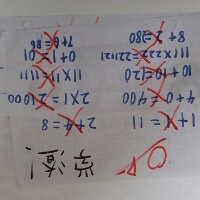 0分 学渣!
1+1=11 2+4=8
4+0=400 2×1=21000
10+10=120 11×11=1111
111×222=221121 0+1=01
8+2=380 7+0=86